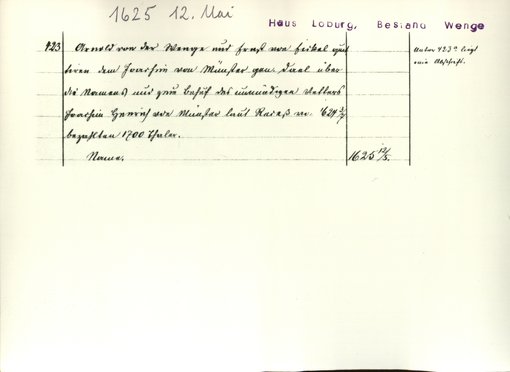 1625 12. Mai
Haus Loburg, Bestand Wenge
423 Arnold von der Wenge und Ernst von Ketteler quit
tiren dem Joachim von Münster gen. über
die Namens und zum Behuf des unmündigen Vetters
Joachim Henrich von Münster laut Receß v. 1624 3/7
bezahlten 1700 Thaler.
Name. 1625 12/5.
Unter 423a liegt
eine Abschrift.